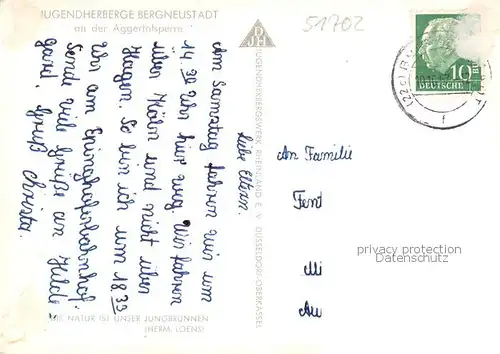 JUGENDHERBERGE BERGNEUSTADT
an der Aggertalsperre
51702
DJH
JUGENDHERBERGSWERK RHEINLAND E. V. DÜSSELDORF-OBERKASSEL
10
DEUTSCHE
Liebe Eltern.
Am Samstag fahren wir um
14.30 Uhr hier weg. Wir fahren
über Köln und nicht über
Hagen. So bin ich um 18.33
Uhr am
Sende viele Grüße an Hilde
Gruß Christa.
An Familie
privacy protection
Datenschutz
NATUR IST UNSER JUNGBRUNNEN
(HERM. LOENS)